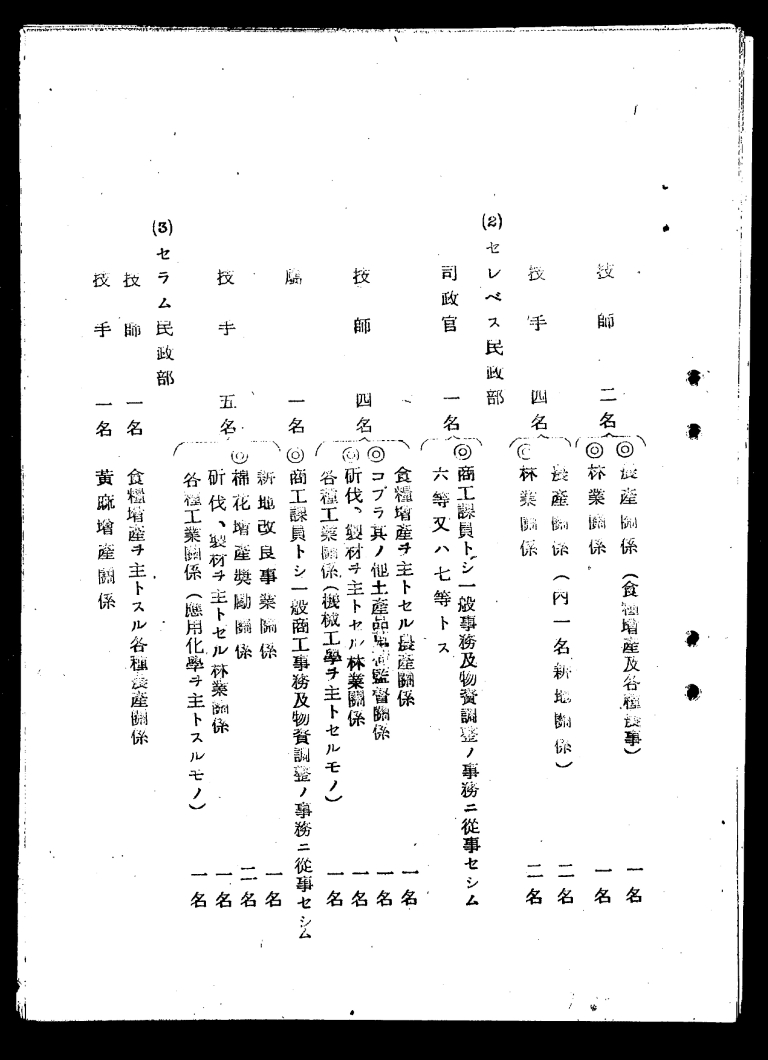 技師 二名
◎農産關係(食糧増産及各種農事) 一名
◎林業關係 一名
技手 四名
農産關係(内一名新地關係) 二名
◎林業關係 二名
(2)セレベス民政部
司政官 一名
◎商工課員トシ一般事務及物資調整ノ事務ニ從事セシム
六等又ハ七等トス
技師 四名
食糧増産ヲ主トセル農産關係 一名
◎コプラ其ノ他土産品 監督關係 一名
◎斫伐、製材ヲ主トセル林業關係 一名
各種工業關係(機械工學ヲ主トセルモノ) 一名
屬 一名
◎商工課員トシ一般商工事務及物資調整ノ事務ニ從事セシム
技手 五名
新地改良事業關係 一名
◎棉花増産奬勵關係 二名
斫伐、製材ヲ主トセル林業關係 一名
各種工業關係(應用化學ヲ主トスルモノ) 一名
(3)セラム民政部
技師 一名 食糧増産ヲ主トスル各種農産關係
技手 一名 黃麻増産關係